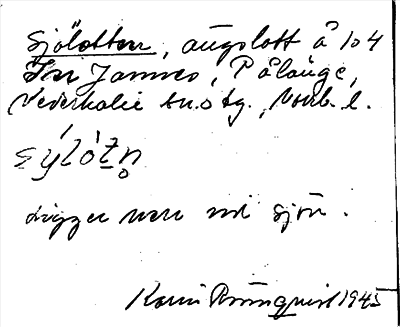 Sjölotten, ängslott å 104
Jannes, Pålänge,
Nederkalix sn. o tg., Norrb. l.
ligger nere vid sjön.
Karin Rönnqvist 1945